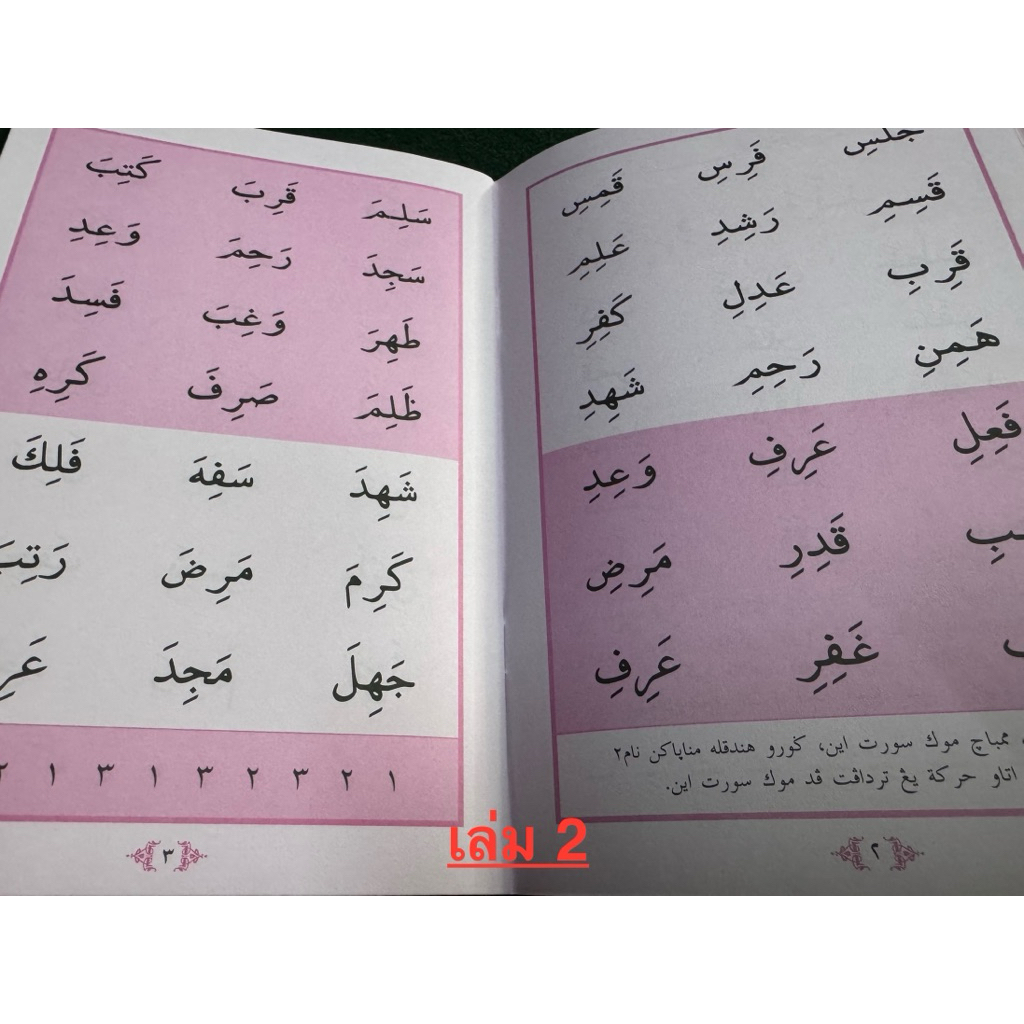 جَلَسِ فَرِسِ قَمِسِ
قَسِمِ رَشِدِ عَلِمِ
قَرِبِ عَدِلِ كَفِرِ
هَمِنِ رَحِمِ شَهِدِ
فَعِلِ عَرِفِ وَعِدِ
قَدِرِ مَرِضِ
غَفِرِ عَرِفِ
ممباچ موك سورت اين، ݢورو هندقله مناباكن نام٢
اتاو حركة يڠ تردافت ڤد موك سورت اين.
٢
سَلِمَ قَرِبَ كَتِبَ
سَجِدَ رَحِمَ وَعِدِ
طَهِرَ وَغِبَ فَسِدَ
ظَلِمَ صَرِفَ كَرِهِ
شَهِدَ سَفِهَ فَلِكَ
كَرِمَ مَرِضَ رَتِبَ
جَهِلَ مَجِدَ
١ ٢ ٣ ٢ ٣ ١ ٣ ١ ٢
٣
เล่ม 2